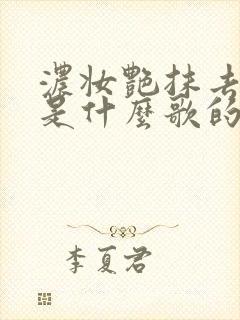 濃妝艷抹去
是什麼歌的
李夏君